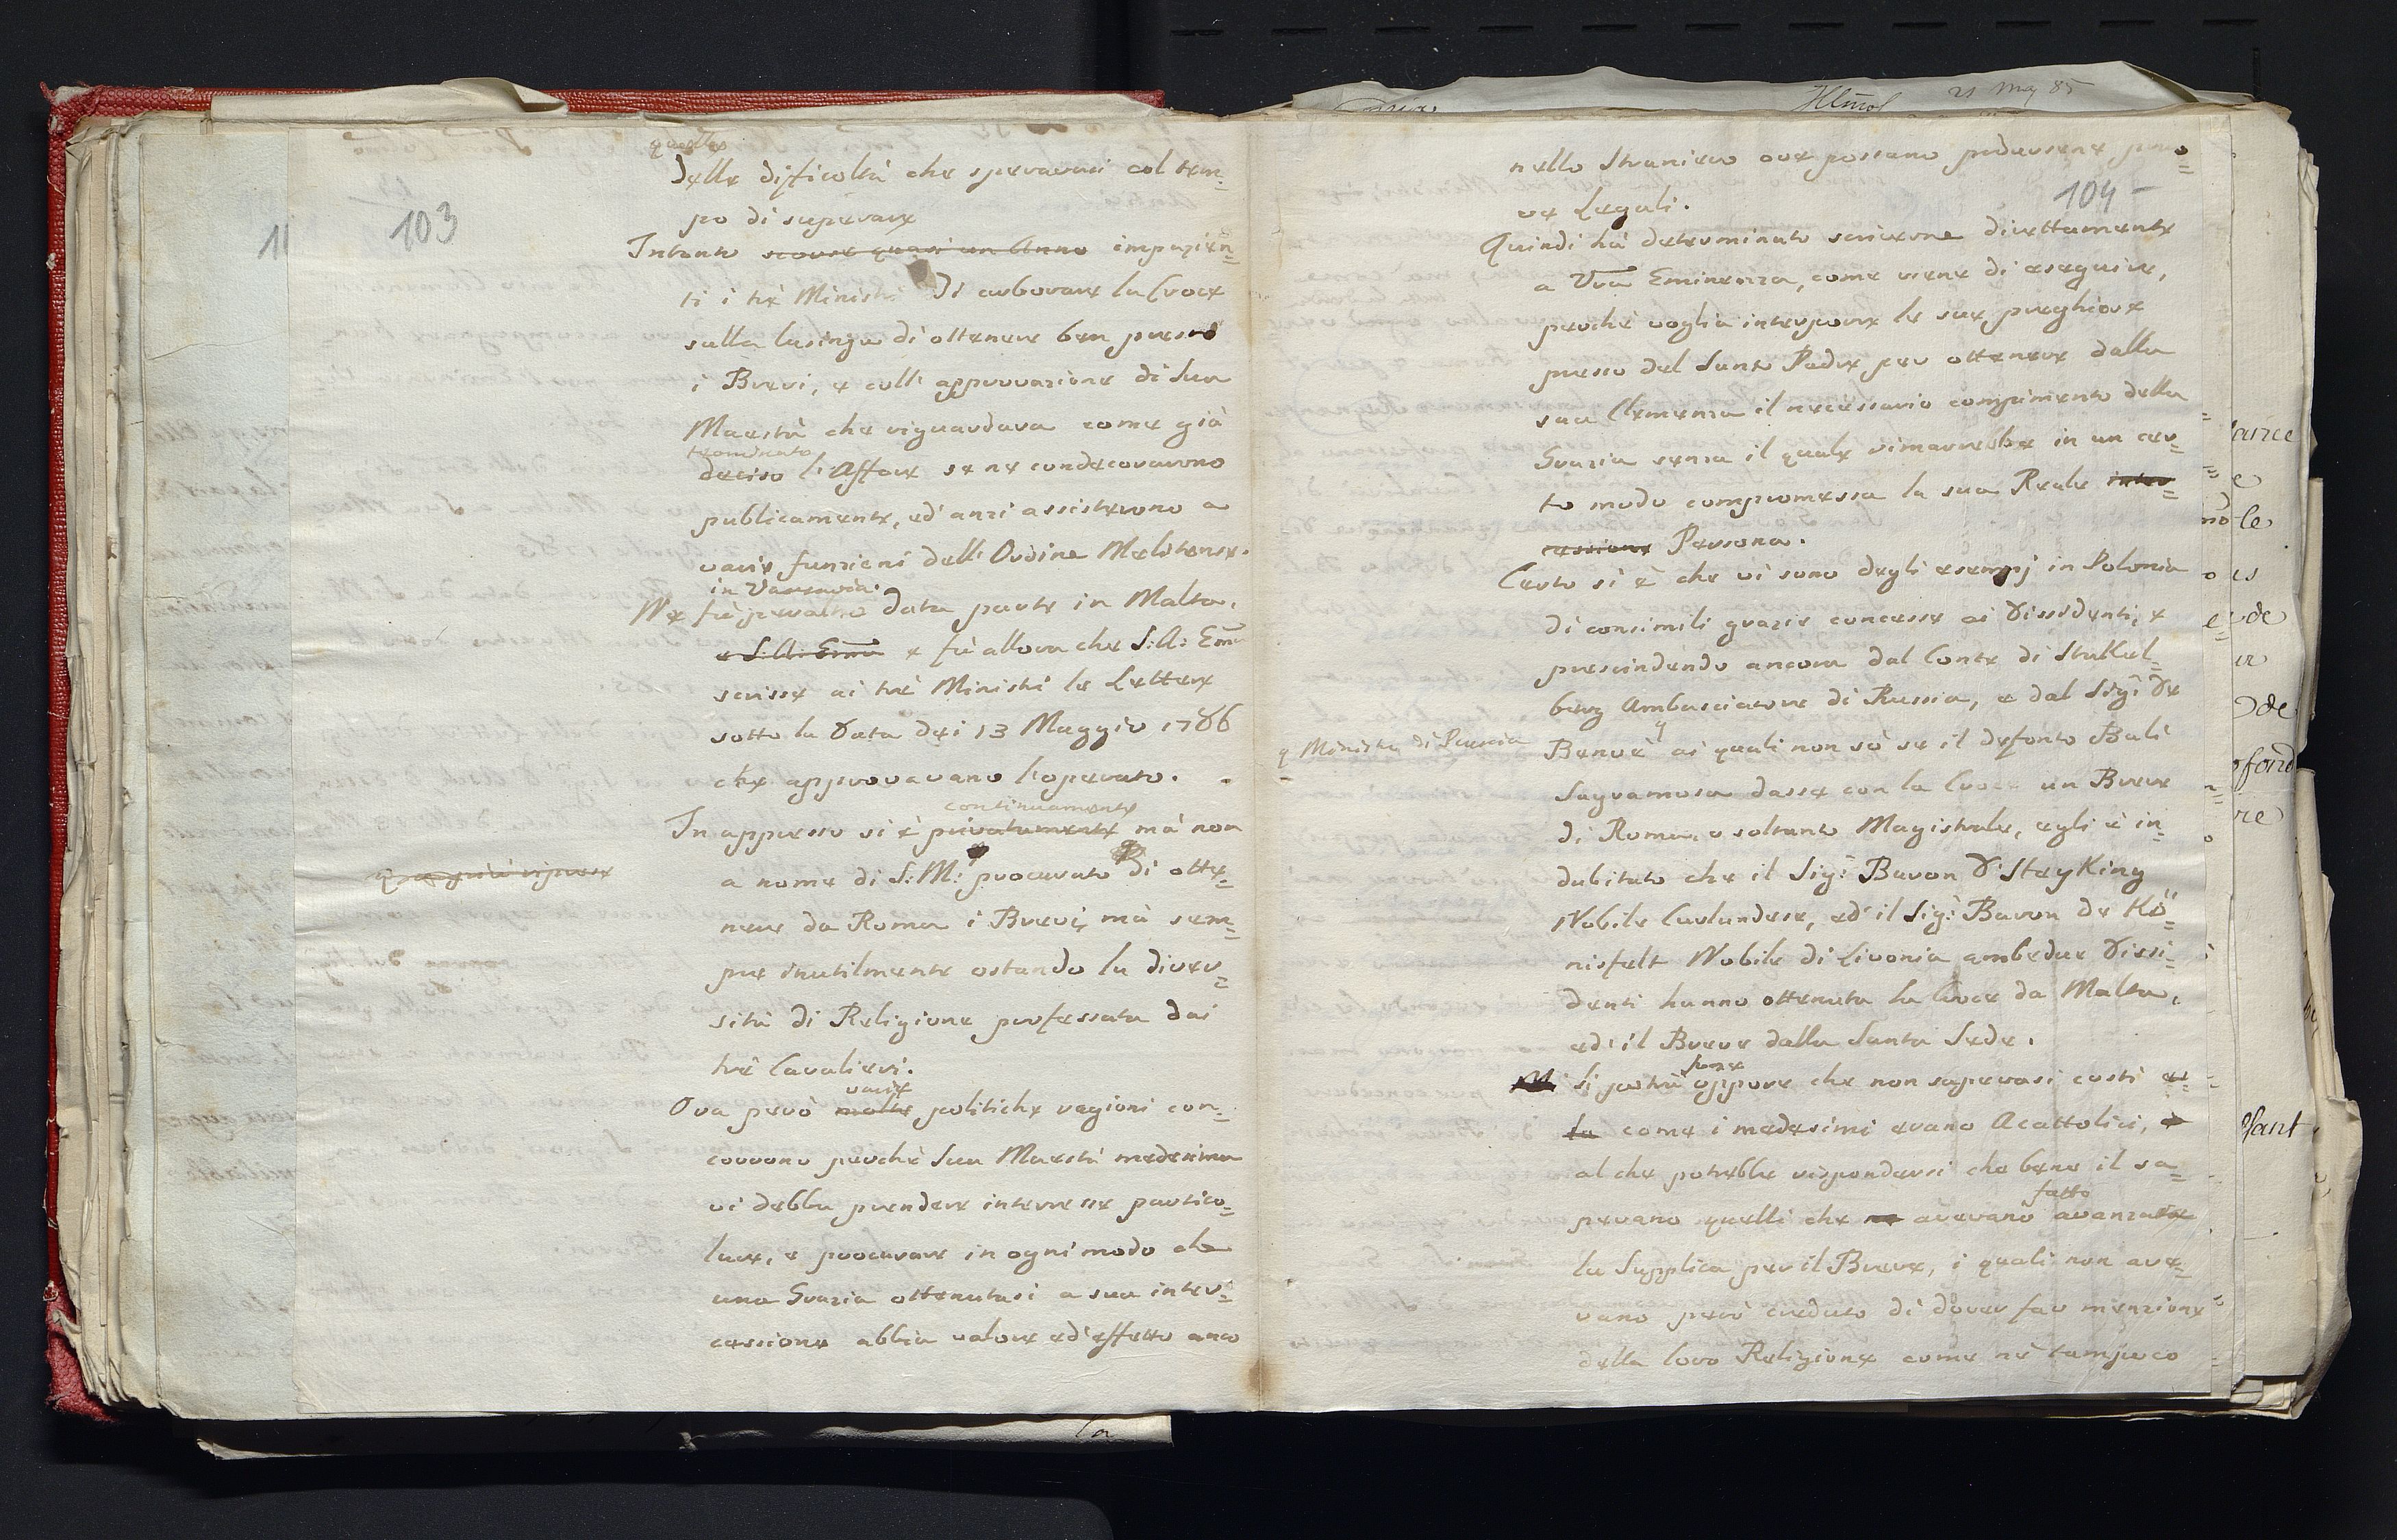 103
quelle
delle difficoltà che speravasi col tem=
po di superare
Intanto scorse quasi un Anno impazien=
ti i trè Ministri di arborare la Croce
sulla lusinga di ottenere ben presto
i Brevi, e coll'approvazione di Sua
Maestà che riguardava come già
terminato
deciso l'Affare se ne condecorarono
publicamente, ed'anzi assisterono a
varie funzioni dell'Ordine Melitense.
in Varsavia.
Ne fù peraltro data parte in Malta,
e S: A: Emã e fù allora che S: A: Emã
scrisse ai trè Ministri le Lettere
sotto la data dei 13 Maggio 1786
che approvavano l'operato.
continuamente
In appresso si è privatamente mà non
a nome di S: M: procurato di otte=
nere da Roma i Brevi, mà sem=
pre inutilmente ostando la diver=
sità di Religione professata dai
trè Cavalieri.
varie
Ora però molte politiche ragioni con=
corrono perchè Sua Maestà medesima
vi debba prendere interesse partico=
lare, e procurare in ogni modo che
una Grazia ottenutasi a sua inter=
cessione abbia valore ed'effetto anco
21 May 85
104
nello Straniero ove possano produrre pro=
ve Legali.
Quindi hà determinato scriverne direttamente
a Vrã Eminenza, come viene di eseguire,
perchè voglia interporre le sue preghiere
presso del Santo Padre per ottenere dalla
sua Clemenza il necessario compimento della
Grazia senza il quale rimarrebbe in un cer=
to modo compromessa la sua Reale inter=
cessione Persona.
Certo si è che vi sono degli esempj in Polonia
di consimili grazie concesse ai Dissidenti, e
prescindendo ancora dal Conte di Stakel=
berg Ambasciatore di Russia, e dal Sigr: De
Ministro di Prussia
Benoè ai quali non sò se il defonto Balì
Sagramosa dasse con la Croce un Breve
di Roma, o soltanto Magistrale, egli è in=
dubitato che il Sigr: Baron D'HeyKing
Nobile Curlandese, ed'il Sigr: Baron de Kö=
nisfelt Nobile di Livonia ambedue Dissi=
denti hanno ottenuta la Croce da Malta,
ed'il Breve dalla Santa Sede.
forse
Si potrà oppore che non sapevasi costì es=
sa come i medesimi erano Acattolici,
al che potrebbe rispondersi che bene il sa=
fatto
pevano quelli che ne avevano avanzare
la Supplica per il Breve, i quali non ave=
vano però creduto di dover far menzione
della loro Religione come nè tampoco